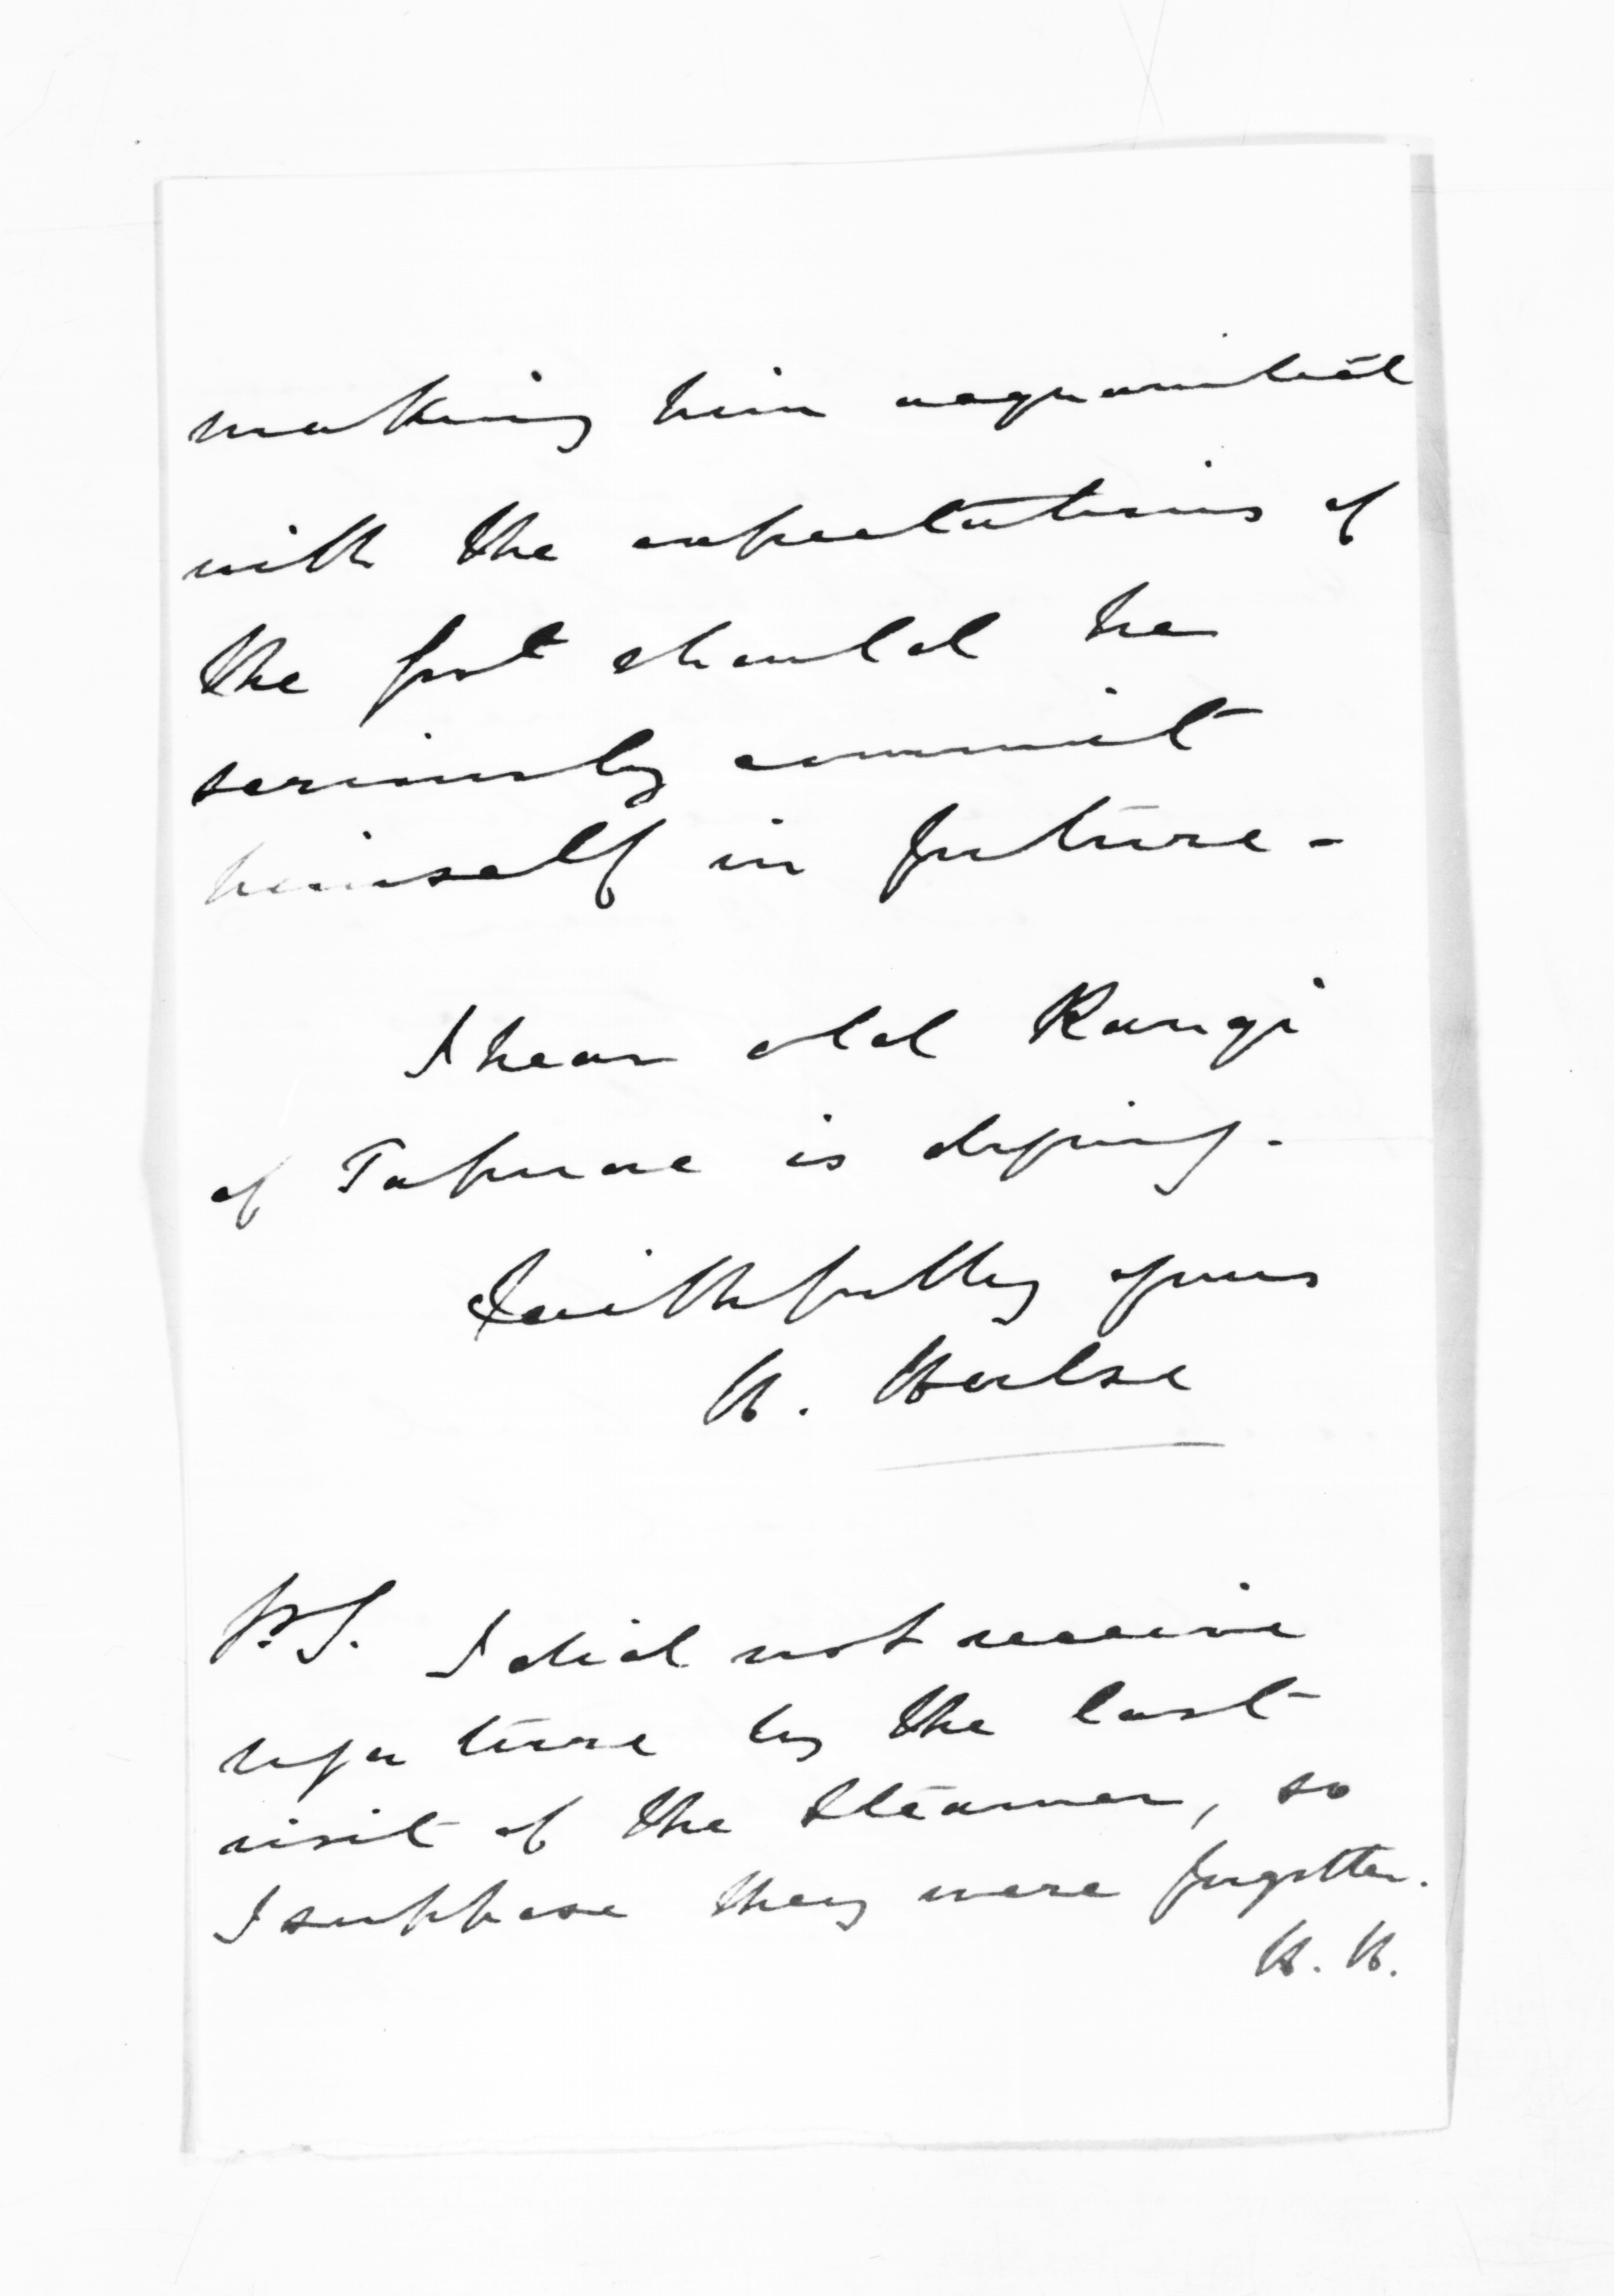 making him acquainted
with the expectations of
the should he
seriously commit
himself in future -
I hear old Rangi
of Tapuae is dying.
Faithfully yours
H. Halse
P.S. I did not receive
nga ture by the last
visit of the steamer, so
I suppose they were forgotten.
H. H.